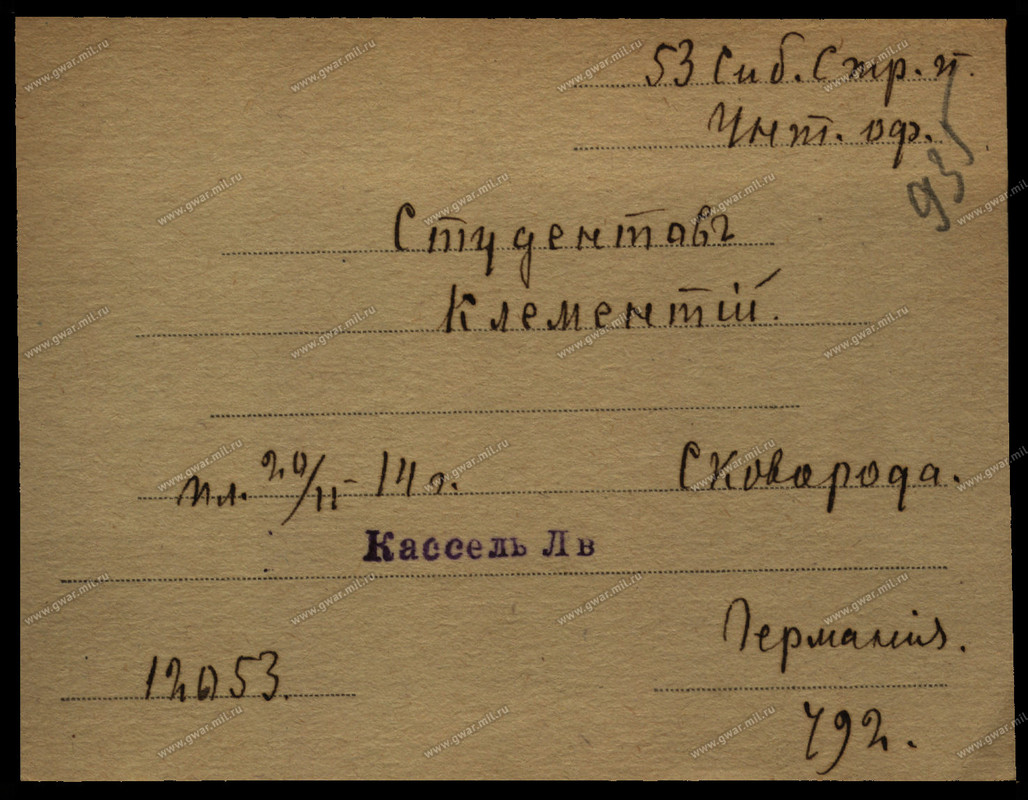 53 Сиб. Стр. п.
Унт. оф.
93
Студентовъ
Клементій.
пл. 20/11-14 г. Сковорода.
Кассель Лв
Германія.
12053.
792.
www.gwar.mil.ru